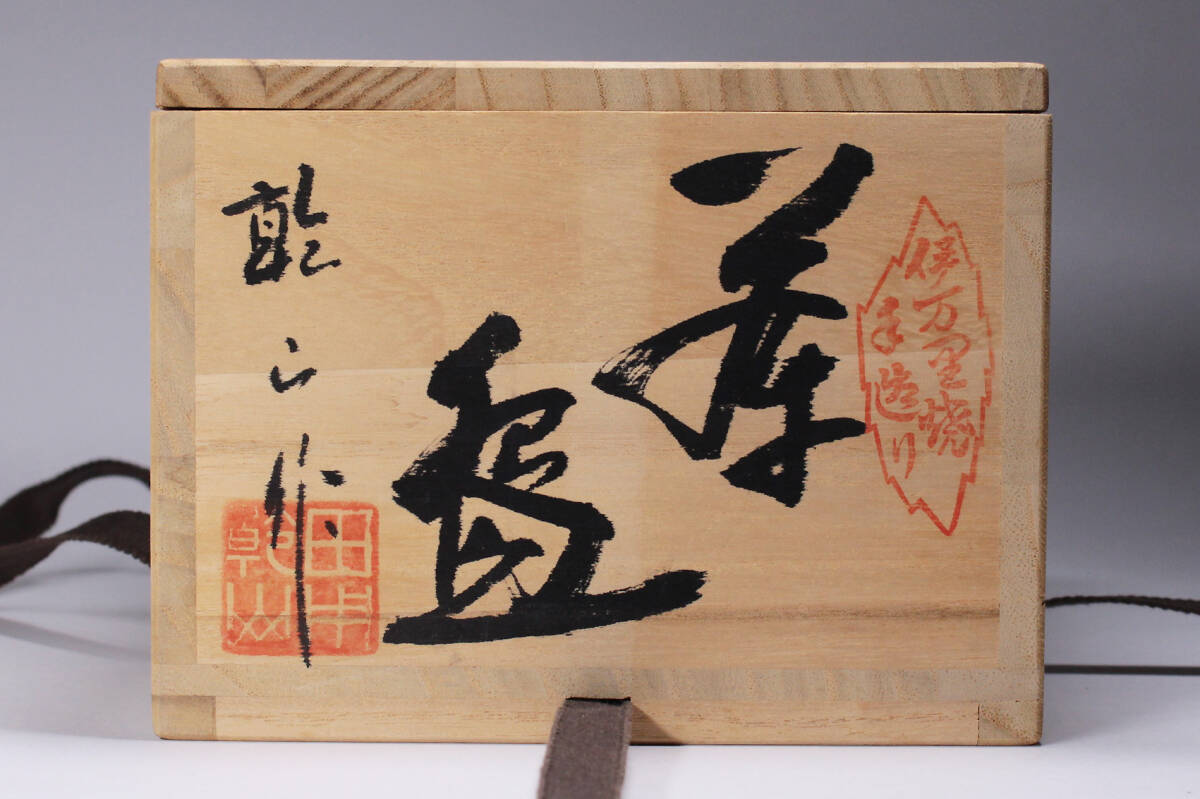 伊万里焼
手造り
茶盌
乾山作
田中
乾山